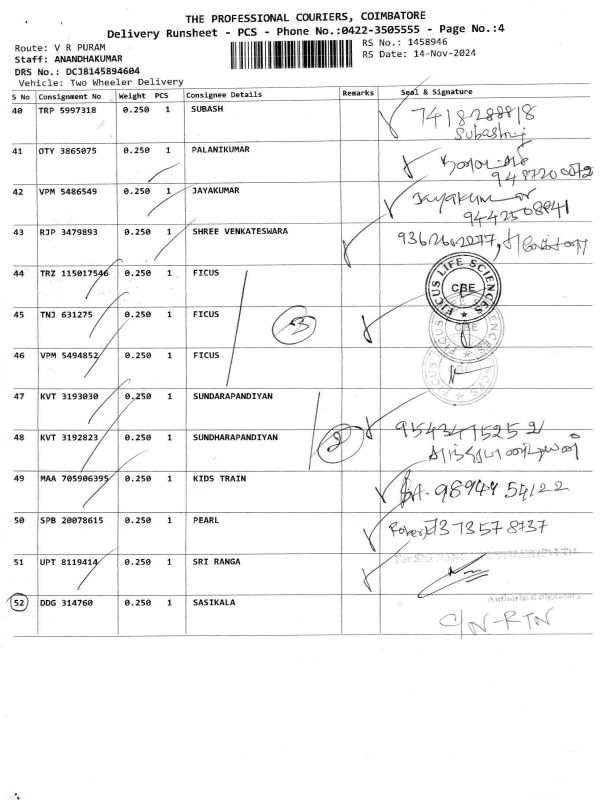 THE PROFESSIONAL COURIERS, COIMBATORE
Delivery Runsheet - PCS - Phone No.:0422-3505555 - Page No.:4
Route: V R PURAM
RS No.: 1458946
Staff: ANANDHAKUMAR
RS Date: 14-Nov-2024
DRS No.: DCJB145894604
Vehicle: Two Wheeler Delivery
S No Consignment No Weight PCS Consignee Details Remarks Seal & Signature
40 TRP 5997318 0.250 1 SUBASH 7418288818
41 OTY 3865075 0.250 1 PALANIKUMAR
9487200072
42 VPM 5486549 0.250 1 JAYAKUMAR Jayakumar
9442508841
43 RJP 3479893 0.250 1 SHREE VENKATESWARA
44 TRZ 115017546 0.250 1 FICUS FICUS LIFE SCIENCES CBE
45 TNJ 631275 0.250 1 FICUS 3 FICUS CBE
46 VPM 5494852 0.250 1 FICUS FICUS
47 KVT 3193030 0.250 1 SUNDARAPANDIYAN
48 KVT 3192823 0.250 1 SUNDHARAPANDIYAN 2 9543471525 2
49 MAA 705906395 0.250 1 KIDS TRAIN 98944 54122
50 SPB 20078615 0.250 1 PEARL Robert 73 73578737
51 UPT 8119414 0.250 1 SRI RANGA
Authorised Signatory
52 DDG 314760 0.250 1 SASIKALA C/N-RTN